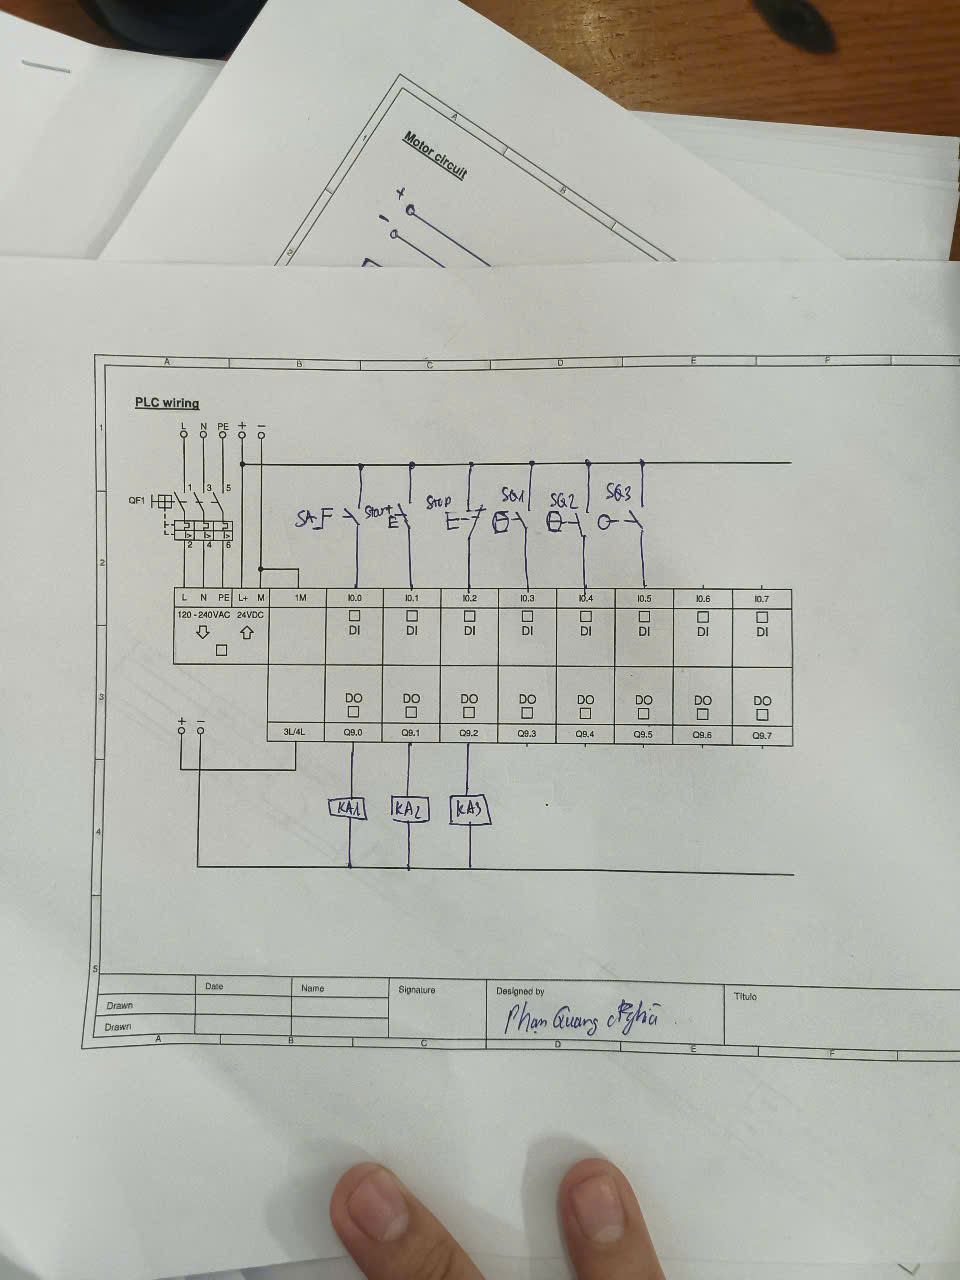 Motor circuit
A
B
1
2
+
-
A
B
C
D
E
F
PLC wiring
1
L N PE + −
1 3 5
QF1
2 4 6
SA
Start
Stop
SQ1
SQ2
SQ3
2
L N PE L+ M 1M I0.0 I0.1 I0.2 I0.3 I0.4 I0.5 I0.6 I0.7
120 - 240VAC 24VDC
DI DI DI DI DI DI DI DI
3
DO DO DO DO DO DO DO DO
+ −
3L/4L Q9.0 Q9.1 Q9.2 Q9.3 Q9.4 Q9.5 Q9.6 Q9.7
4
KA1 KA2 KA3
5
Date Name Signature Designed by Título
Drawn
Phạm Quang Nghĩa
Drawn
A B C D E F